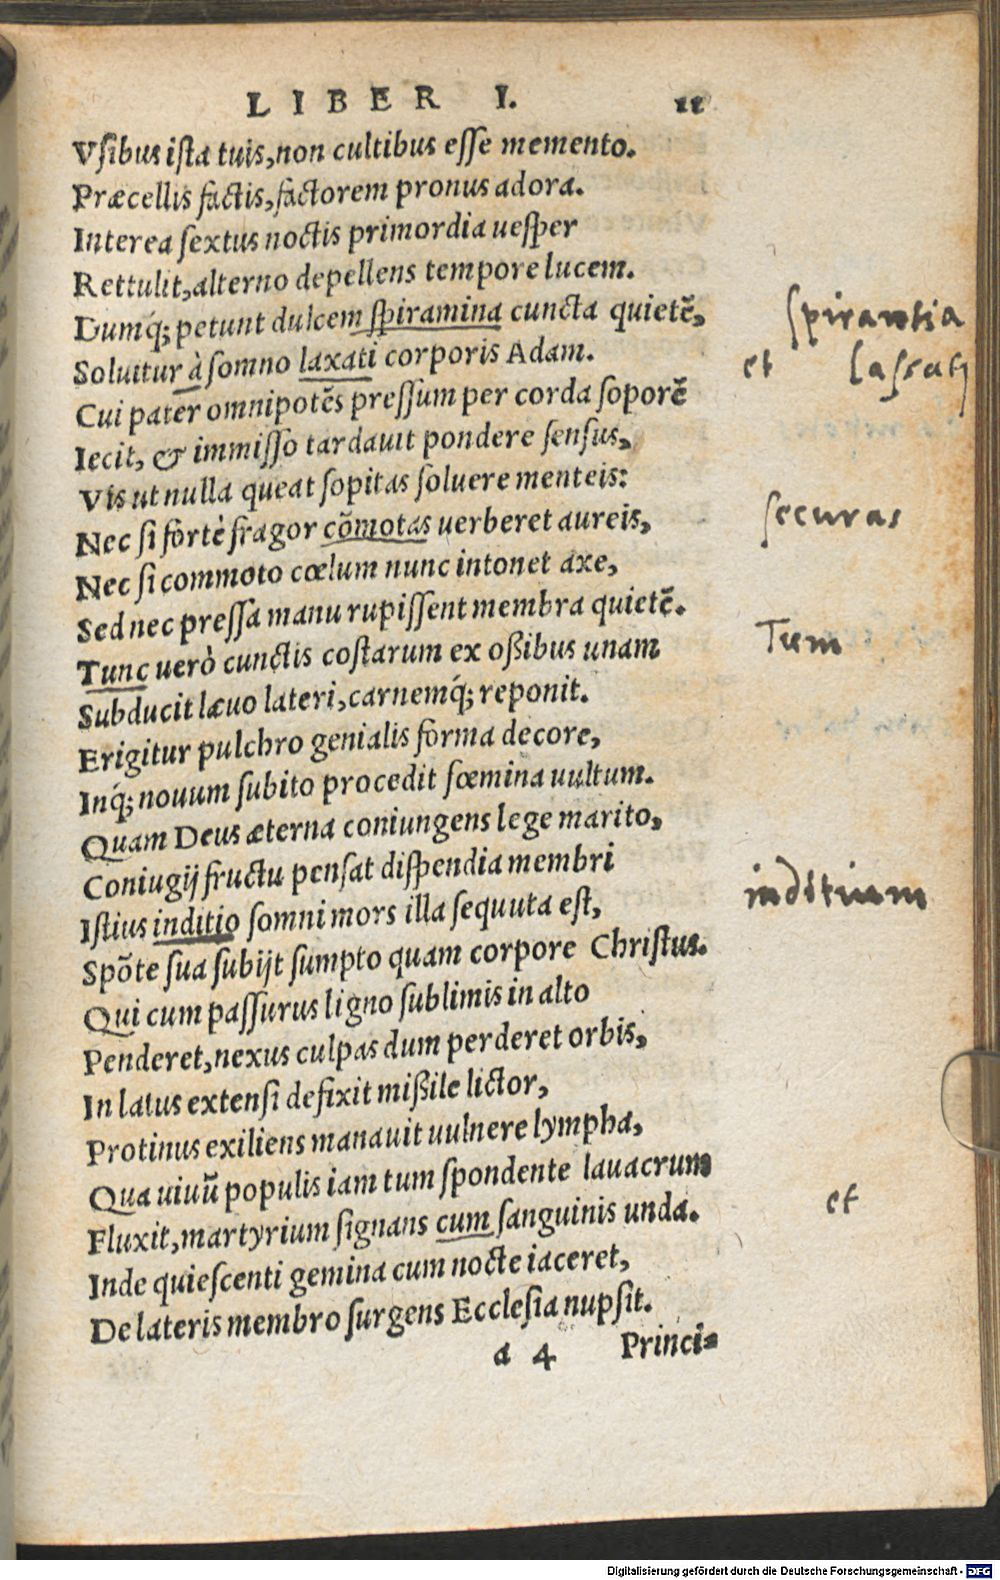 LIBER I. 11
Vſibus iſta tuis, non cultibus eſſe memento.
Præcellis factis, factorem pronus adora.
Interea ſextus noctis primordia ueſper
Rettulit, alterno depellens tempore lucem.
Dumq́; petunt dulcem ſpiramina cuncta quietē,
spirantia
Soluitur à ſomno laxati corporis Adam.
et lassati
Cui pater omnipotēs preſſum per corda ſoporē
Iecit, & immiſſo tardauit pondere ſenſus,
Vis ut nulla queat ſopitas ſoluere menteis:
Nec ſi fortè fragor cōmotas uerberet aureis,
securas
Nec ſi commoto cœlum nunc intonet axe,
Sed nec preſſa manu rupiſſent membra quietē.
Tunc uerò cunctis coſtarum ex oßibus unam
Tum
Subducit læuo lateri, carnemq́; reponit.
Erigitur pulchro genialis forma decore,
Inq́; nouum ſubito procedit fœmina uultum.
Quam Deus æterna coniungens lege marito,
Coniugij fructu penſat diſpendia membri
Iſtius inditio ſomni mors illa ſequuta eſt,
inditium
Spōte ſua ſubijt ſumpto quam corpore Chriſtus.
Qui cum paſſurus ligno ſublimis in alto
Penderet, nexus culpas dum perderet orbis,
In latus extenſi defixit mißile lictor,
Protinus exiliens manauit uulnere lympha,
Qua uiuū populis iam tum ſpondente lauacrum
Fluxit, martyrium ſignans cum ſanguinis unda.
et
Inde quieſcenti gemina cum nocte iaceret,
De lateris membro ſurgens Eccleſia nupſit.
a 4 Princi-
Digitalisierung gefördert durch die Deutsche Forschungsgemeinschaft - DFG